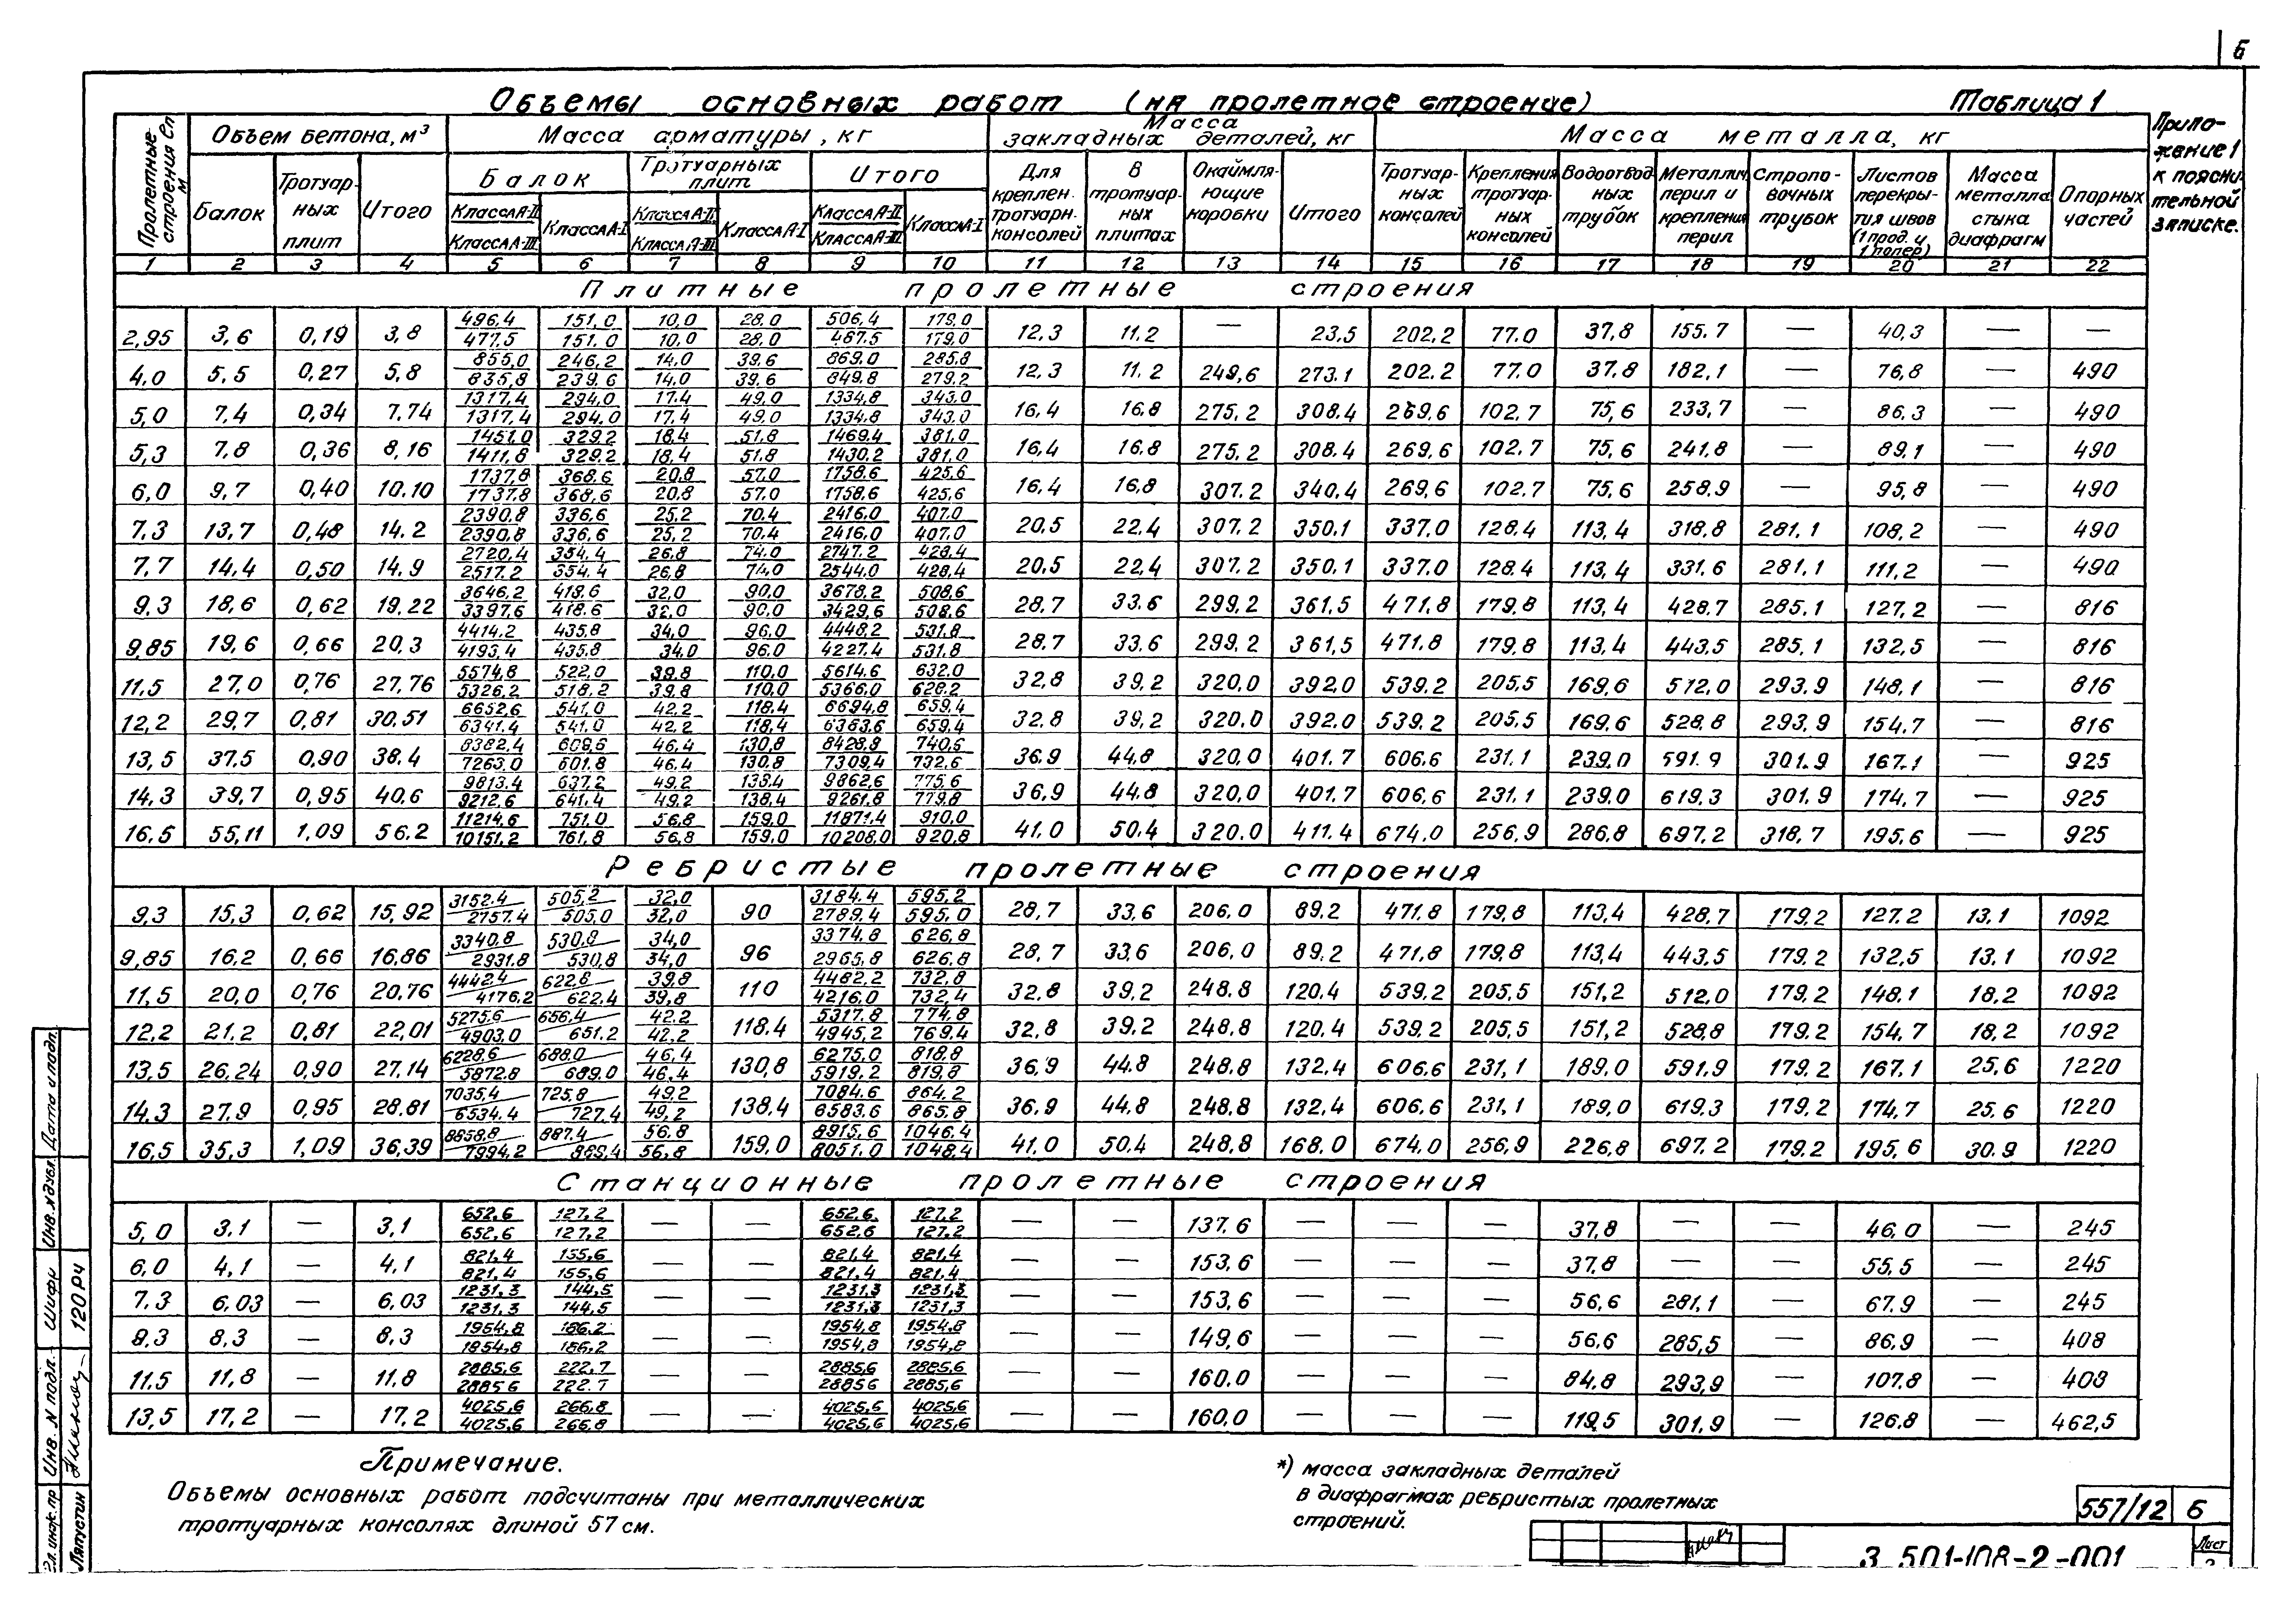 6
Объемы основных работ (на пролетное строение) Таблица 1
Приложение 1 к пояснительной записке.
Пролетные строения ℓп м | Объем бетона, м³ | Масса арматуры, кг | Масса закладных деталей, кг | Масса металла, кг
Балок | Тротуарных плит | Итого | Балок | Тротуарных плит | Итого | Для креплен. тротуарн. консолей | В тротуарных плитах | Окаймляющие коробки | Итого | Тротуарных консолей | Крепления тротуарных консолей | Водоотводных трубок | Металлич. перил и крепления перил | Строповочных трубок | Листов перекрытия швов (1 прод. и 1 попер) | Масса металла стыка диафрагм | Опорных частей
Класс А-II / Класс А-III | Класс А-I | Класс А-II / Класс А-III | Класс А-I | Класс А-II / Класс А-III | Класс А-I
1 2 3 4 5 6 7 8 9 10 11 12 13 14 15 16 17 18 19 20 21 22
Плитные пролетные строения
2,95 3,6 0,19 3,8 496,4/477,5 151,0/151.0 10,0/10,0 28.0/28,0 506,4/467,5 179,0/179,0 12.3 11.2 — 23,5 202,2 77.0 37,8 155.7 — 40,3 — —
4,0 5,5 0,27 5,8 855,0/835,8 246,2/239,6 14,0/14,0 39,6/39,6 869,0/849,8 285,8/279,2 12.3 11.2 249,6 273.1 202.2 77.0 37.8 182,1 — 76,8 — 490
5,0 7,4 0,34 7.74 1317,4/1317,4 294,0/294,0 17,4/17,4 49,0/49,0 1334,8/1334,8 343,0/343,0 16,4 16,8 275,2 308.4 269,6 102.7 75,6 233,7 — 86,3 — 490
5,3 7,8 0,36 8,16 1451,0/1411,8 329,2/329,2 18,4/18,4 51,8/51,8 1469,4/1430,2 381,0/381,0 16,4 16,8 275,2 308.4 269,6 102.7 75,6 241,8 — 89,1 — 490
6,0 9,7 0,40 10.10 1737,8/1737,8 368,6/368,6 20,8/20,8 57.0/57.0 1758,6/1758,6 425,6/425,6 16,4 16,8 307.2 340,4 269,6 102.7 75,6 258,9 — 95,8 — 490
7,3 13,7 0,48 14.2 2390,8/2390,8 336,6/336,6 25,2/25,2 70.4/70.4 2416.0/2416.0 407.0/407.0 20,5 22,4 307,2 350,1 337.0 128.4 113,4 318,8 281,1 108,2 — 490
7,7 14,4 0,50 14.9 2720,4/2517,2 354,4/354,4 26,8/26,8 74,0/74,0 2747.2/2544.0 428,4/428,4 20,5 22,4 307.2 350,1 337.0 128.4 113,4 331.6 281.1 111,2 — 490
9,3 18,6 0,62 19.22 3646,2/3397,6 418,6/418,6 32,0/32,0 90,0/90,0 3678,2/3429,6 508,6/508,6 28,7 33,6 299,2 361,5 471,8 179,8 113,4 428,7 285,1 127,2 — 816
9,85 19,6 0,66 20,3 4414.2/4193,4 435.8/435.8 34,0/34,0 96,0/96.0 4448,2/4227.4 531.8/531.8 28.7 33.6 299,2 361,5 471,8 179,8 113,4 443,5 285,1 132,5 — 816
11,5 27,0 0,76 27,76 5574,8/5326,2 522,0/518,2 39,8/39,8 110,0/110,0 5614.6/5366,0 632.0/628.2 32,8 39,2 320,0 392,0 539,2 205,5 169,6 512,0 293.9 148,1 — 816
12,2 29,7 0,81 30,51 6652,6/6341,4 541,0/541,0 42,2/42,2 118,4/118,4 6694,8/6383,6 659,4/659,4 32.8 39,2 320.0 392.0 539,2 205,5 169,6 528,8 293,9 154,7 — 816
13,5 37,5 0,90 38.4 8382,4/7263,0 609,6/601,8 46,4/46,4 130,8/130,8 8428,8/7309,4 740,6/732,6 36.9 44,8 320,0 401.7 606,6 231,1 239,0 591.9 301.9 167.1 — 925
14,3 39,7 0,95 40,6 9813.4/9212,6 637,2/641,4 49,2/49,2 138,4/138,4 9862,6/9261,8 775,6/779,8 36,9 44,8 320,0 401.7 606,6 231,1 239.0 619,3 301,9 174,7 — 925
16,5 55,11 1,09 56.2 11214,6/10151,2 751.0/761,8 56,8/56,8 159,0/159,0 11871,4/10208,0 910,0/920,8 41,0 50.4 320.0 411.4 674.0 256,9 286,8 697,2 318,7 195,6 — 925
Ребристые пролетные строения
9,3 15,3 0,62 15,92 3152.4/2757.4 505,2/505,0 32,0/32,0 90 3184.4/2789,4 595,2/595,0 28,7 33,6 206,0 89.2 471.8 179,8 113,4 428,7 179,2 127.2 13,1 1092
9,85 16,2 0,66 16,86 3340,8/2931.8 530,8/530,8 34,0/34,0 96 3374,8/2965,8 626,8/626,8 28,7 33,6 206,0 89,2 471,8 179,8 113,4 443,5 179.2 132,5 13.1 1092
11,5 20,0 0,76 20,76 4442,4/4176,2 622,8/622,4 39,8/39,8 110 4482,2/4216,0 732,8/732,4 32,8 39,2 248.8 120.4 539,2 205,5 151,2 512,0 179,2 148.1 18,2 1092
12,2 21,2 0,81 22,01 5275,6/4903.0 656,4/651.2 42.2/42,2 118.4 5317.8/4945,2 774,8/769,4 32,8 39,2 248,8 120.4 539,2 205,5 151,2 528,8 179.2 154,7 18,2 1092
13,5 26,24 0,90 27.14 6228,6/5872.8 688,0/689.0 46,4/46,4 130,8 6275,0/5919,2 818,8/819,8 36,9 44.8 248,8 132,4 606.6 231,1 189,0 591,9 179,2 167,1 25,6 1220
14.3 27,9 0,95 28.81 7035,4/6534.4 725,8/727,4 49,2/49,2 138,4 7084,6/6583,6 864,2/865,8 36,9 44,8 248,8 132,4 606,6 231,1 189,0 619,3 179,2 174,7 25,6 1220
16,5 35,3 1,09 36,39 8858,8/7994,2 887.4/889,4 56.8/56,8 159,0 8915,6/8051,0 1046,4/1048,4 41.0 50.4 248,8 168.0 674,0 256,9 226,8 697.2 179.2 195,6 30.9 1220
Станционные пролетные строения
5,0 3.1 — 3,1 652,6/652,6 127,2/127,2 — — 652,6/652,6 127,2/127,2 — — 137.6 — — — 37,8 — — 46,0 — 245
6,0 4,1 — 4,1 821,4/821,4 155,6/155,6 — — 821,4/821,4 821,4/821,4 — — 153,6 — — — 37,8 — — 55,5 — 245
7,3 6,03 — 6,03 1231,3/1231,3 144,5/144,5 — — 1231,3/1231,3 1231,3/1231,3 — — 153,6 — — — 56,6 281,1 — 67.9 — 245
9,3 8,3 — 8,3 1954,8/1854,8 186,2/186,2 — — 1954,8/1954,8 1954,8/1954,8 — — 149,6 — — — 56,6 285,5 — 86,9 — 408
11,5 11,8 — 11.8 2885,6/2885,6 222,7/222.7 — — 2885,6/2885,6 2885,6/2885,6 — — 160.0 — — — 84,8 293,9 — 107,8 — 408
13,5 17,2 — 17,2 4025,6/4025,6 266,8/266,8 — — 4025,6/4025,6 4025,6/4025,6 — — 160,0 — — — 119,5 301,9 — 126.8 — 462,5
Примечание.
Объемы основных работ подсчитаны при металлических
тротуарных консолях длиной 57 см.
*) масса закладных деталей
в диафрагмах ребристых пролетных
строений.
557/12 6
3.501-108-2-001
Лист
Гл. инж. пр Ляпустин
Инв. N подл.
Шифр 120РЧ
Инв. N дубл.
Дата и подп.